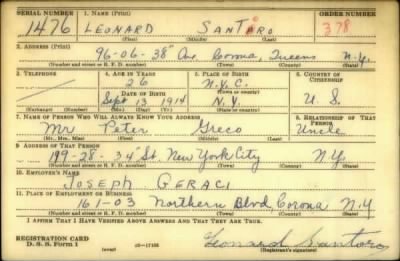 SERIAL NUMBER 1. NAME (Print) ORDER NUMBER
1476 LEONARD SANTORO 378
(First) (Middle) (Last)
2. ADDRESS (Print)
96-06-38" Ave Corona, Queens N.Y.
(Number and street or R. F. D. number) (Town) (County) (State)
3. TELEPHONE 4. AGE IN YEARS 5. PLACE OF BIRTH 6. COUNTRY OF CITIZENSHIP
26 N.Y.C.
DATE OF BIRTH (Town or county)
Sept 13 1914 N.Y. U.S.
(Exchange) (Number) (Mo.) (Day) (Yr.) (State or country)
7. NAME OF PERSON WHO WILL ALWAYS KNOW YOUR ADDRESS 8. RELATIONSHIP OF THAT PERSON
Mr Peter Greco Uncle
(Mr., Mrs., Miss) (First) (Middle) (Last)
9. ADDRESS OF THAT PERSON
St. New York City N.Y.
(Number and street or R. F. D. number) (Town) (County) (State)
10. EMPLOYER'S NAME
JOSEPH GERACI
11. PLACE OF EMPLOYMENT OR BUSINESS
161-03 Northern Blvd Corona N.Y
(Number and street or R. F. D. number) (Town) (County) (State)
I AFFIRM THAT I HAVE VERIFIED ABOVE ANSWERS AND THAT THEY ARE TRUE.
REGISTRATION CARD
D. S. S. Form 1 (over) 16-17105 Leonard Santoro
(Registrant's signature)